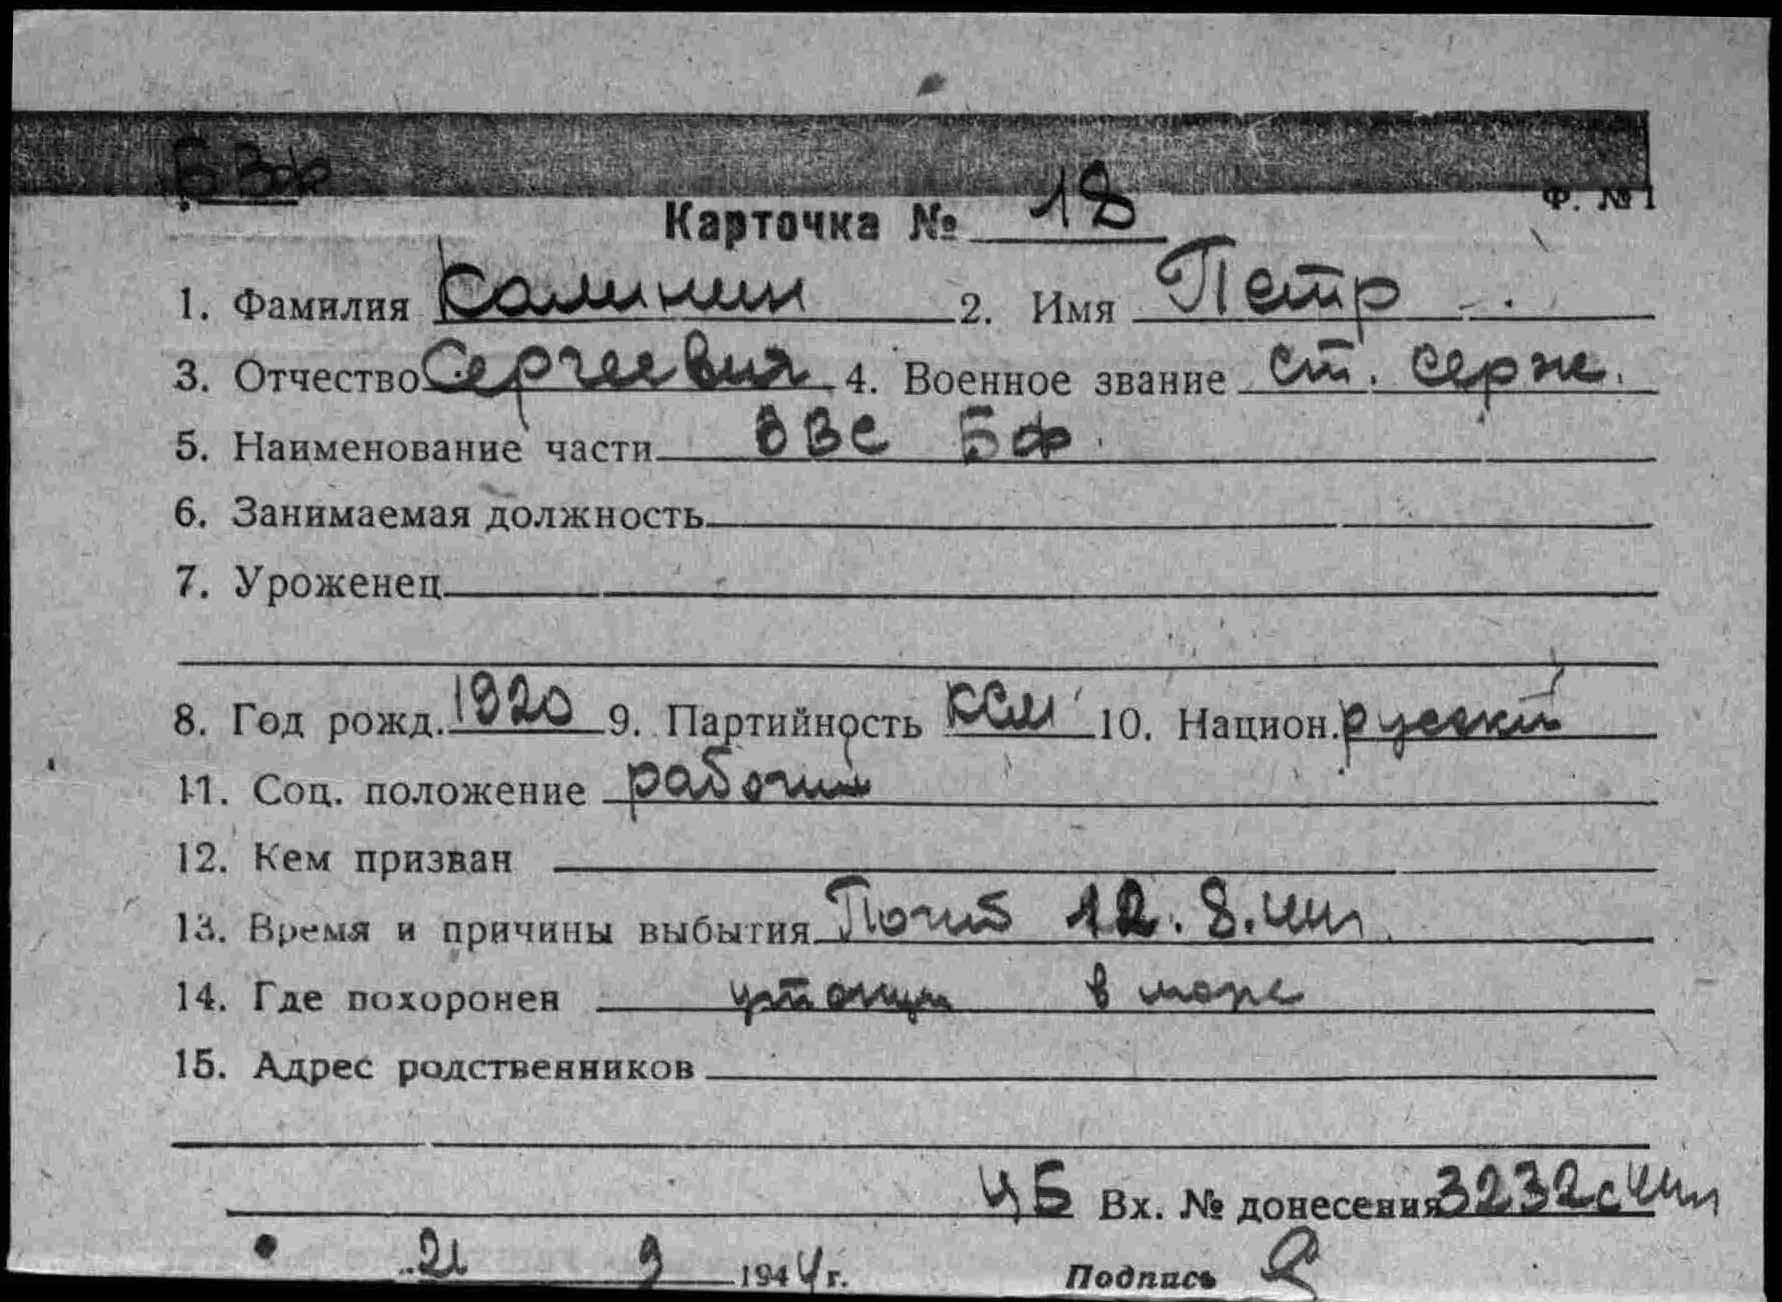 Ф. № 1
Карточка № 18
1. Фамилия Калинин 2. Имя Петр
3. Отчество Сергеевич 4. Военное звание ст. серж.
5. Наименование части ВВС БФ
6. Занимаемая должность
7. Уроженец
8. Год рожд. 1920 9. Партийность КСМ 10. Национ. русский
11. Соц. положение рабочий
12. Кем призван
13. Время и причины выбытия Погиб 12.8.44г
14. Где похоронен в море
15. Адрес родственников
Вх. № донесения 3232с 44г
21 9 1944 г. Подпись